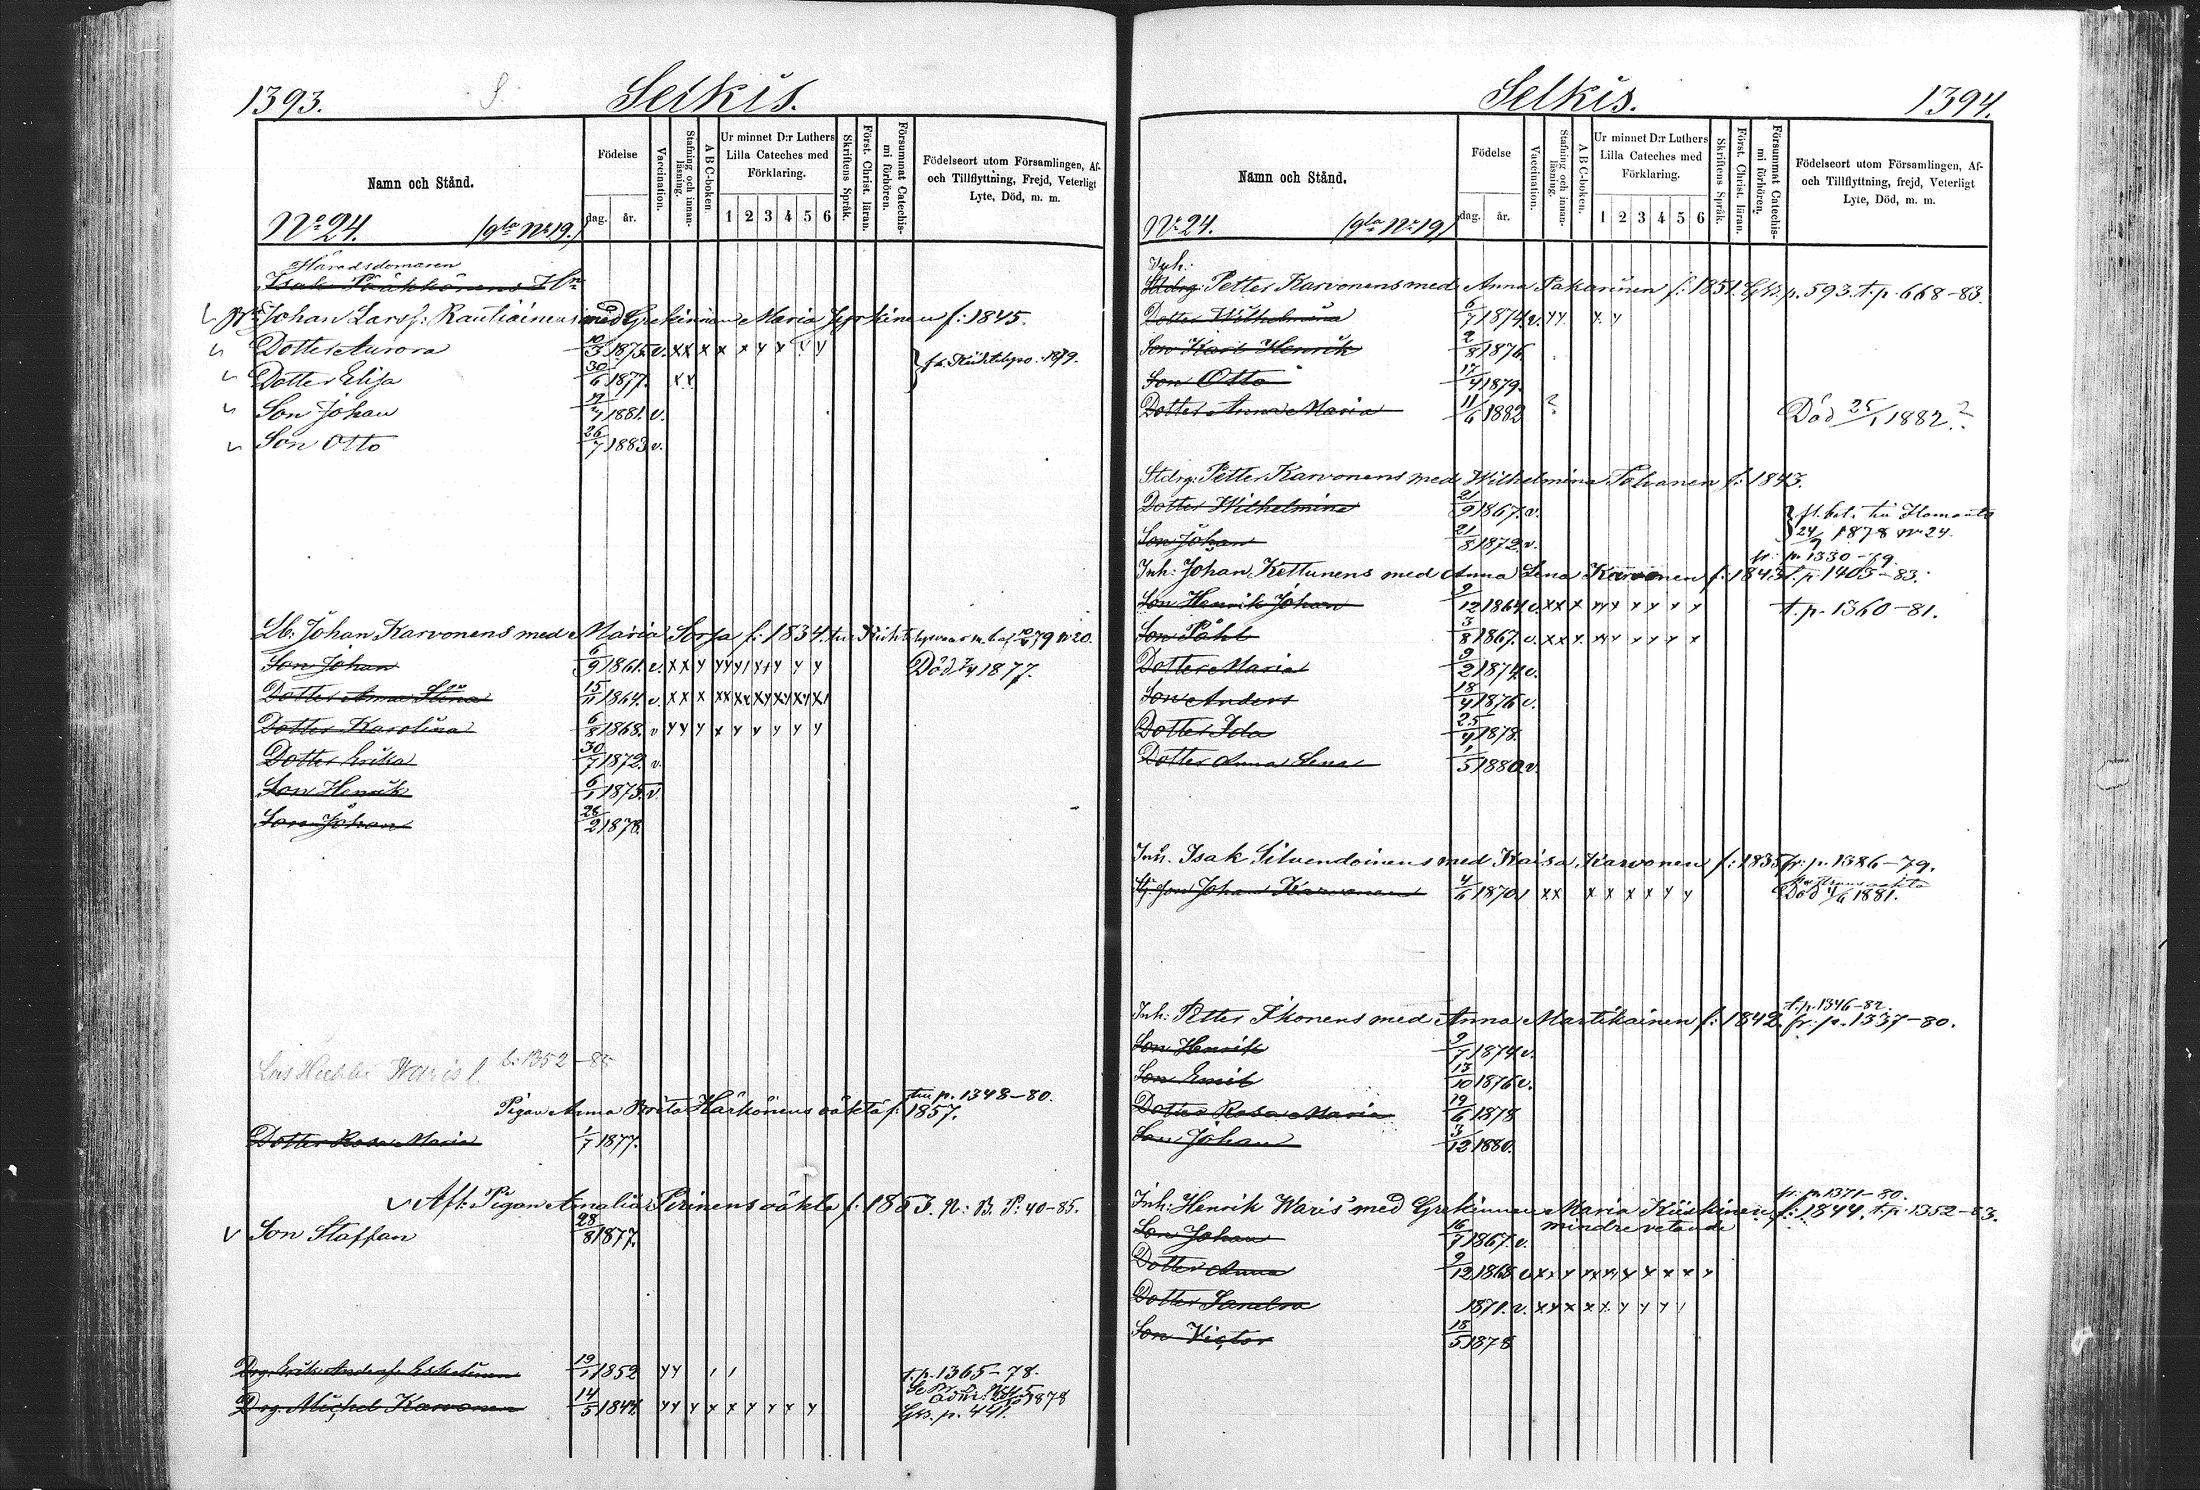 1393. S. Selkis.
Namn och Stånd.
Födelse
dag. år.
Vaccination.
Stafning och innan-läsning.
A B C-boken
Ur minnet D:r Luthers Lilla Cateches med Förklaring.
1 2 3 4 5 6
Skriftens Språk.
Först. Christ. läran.
Försummat Catechis-mi förhören.
Födelseort utom Församlingen, Af- och Tillflyttning, Frejd, Veterligt Lyte, Död, m. m.
No 24. (gla No 19.)
Häradsdomaren
Isak Pääkkönens
Johan Larsf: Rautiainens med Grekinnan Maria f: 1845.
Dotter Aurora 1875. v. x x x x x y x y y
Dotter Elisa 30/6 1877. x x
Son Johan 1881. v.
Son Otto 26/7 1883 v.
Lb: Johan Karvonens med Maria Sorsa f: 1834. 79 No 20.
Son Johan 6/9 1861. v. Död 1877.
Dotter Anna Stina 15/11 1864. v.
Dotter Karolina 6/8 1868. v
Dotter Erika 30/7 1872. v.
Son Henrik 6/1 1875. v.
Son Johan 28/2 1878.
Waris 1352-85
till p. 1348-80.
Pigan Anna Brita Härkönens oäkta f: 1857.
Dotter Rosa Maria 1/7 1877.
Aft: Pigan Amalia Pirinens oäkta f: 1853. N: B. P: 40-85.
Son Staffan 28/8 1877.
Drg. Erik Andersf. Eskelinen 19/1 1852 t. p. 1365-78.
Drg. Michel Karvonen 14/5 1844 1878
p. 441.
Selkis. 1394.
Namn och Stånd.
Födelse
dag. år.
Vaccination.
Stafning och innan-läsning.
A B C-boken.
Ur minnet D:r Luthers Lilla Cateches med Förklaring.
1 2 3 4 5 6
Skriftens Språk.
Först. Christ. läran.
Försummat Catechis-mi förhören.
Födelseort utom Församlingen, Af- och Tillflyttning, frejd, Veterligt Lyte, Död, m. m.
No 24. (gla No 19)
Inh:
Stdrg: Petter Karvonens med Anna Pakarinen f: 1851. p. 593. t. p. 668-83.
Dotter Wilhelmina 6/7 1874. v.
Son Karl Henrik 2/8 1876.
Son Otto 17/4 1879.
Dotter Anna Maria 11/6 1882 ? Död 25/1 1882?
Stdrg: Petter Karvonens med Wilhelmina Tohvanen f: 1843.
Dotter Wilhelmina 21/9 1867. v.
Son Johan 21/8 1872. v. 24/9 1878 No 24.
fr: p. 1330-79.
Inh: Johan Kettunens med Anna Lena Karvonen f: 1843 t. p. 1403-83.
Son Henrik Johan 9/12 1864. v. t. p. 1360-81.
Son Påhl 3/8 1867. v.
Dotter Maria 9/2 1874. v.
Son Anders 18/4 1876 v.
Dotter Ida 25/4 1878.
Dotter Anna Lena 1/5 1880 v.
Inh. Isak Silvendoinens med Kaisa Karvonen f: 1835 fr: p. 1386-79.
Son Johan Karvonen 4/6 1870. Död 1881.
t. p. 1346-82.
Inh: Petter Ikonens med Anna Martikainen f: 1842. fr: p. 1337-80.
Son Henrik 9/7 1874 v.
Son Emil 13/10 1876 v.
Dotter Rosa Maria 19/6 1878
Son Johan 3/12 1880.
fr: p. 1371-80.
Inh: Henrik Waris med Grekinnan Maria Kiiskinen f: 1844. t. p. 1352-83.
mindre vetande
Son Johan 16/7 1867. v.
Dotter Anna 9/12 1868 v.
Dotter Sandra 1871. v.
Son Victor 18/5 1878